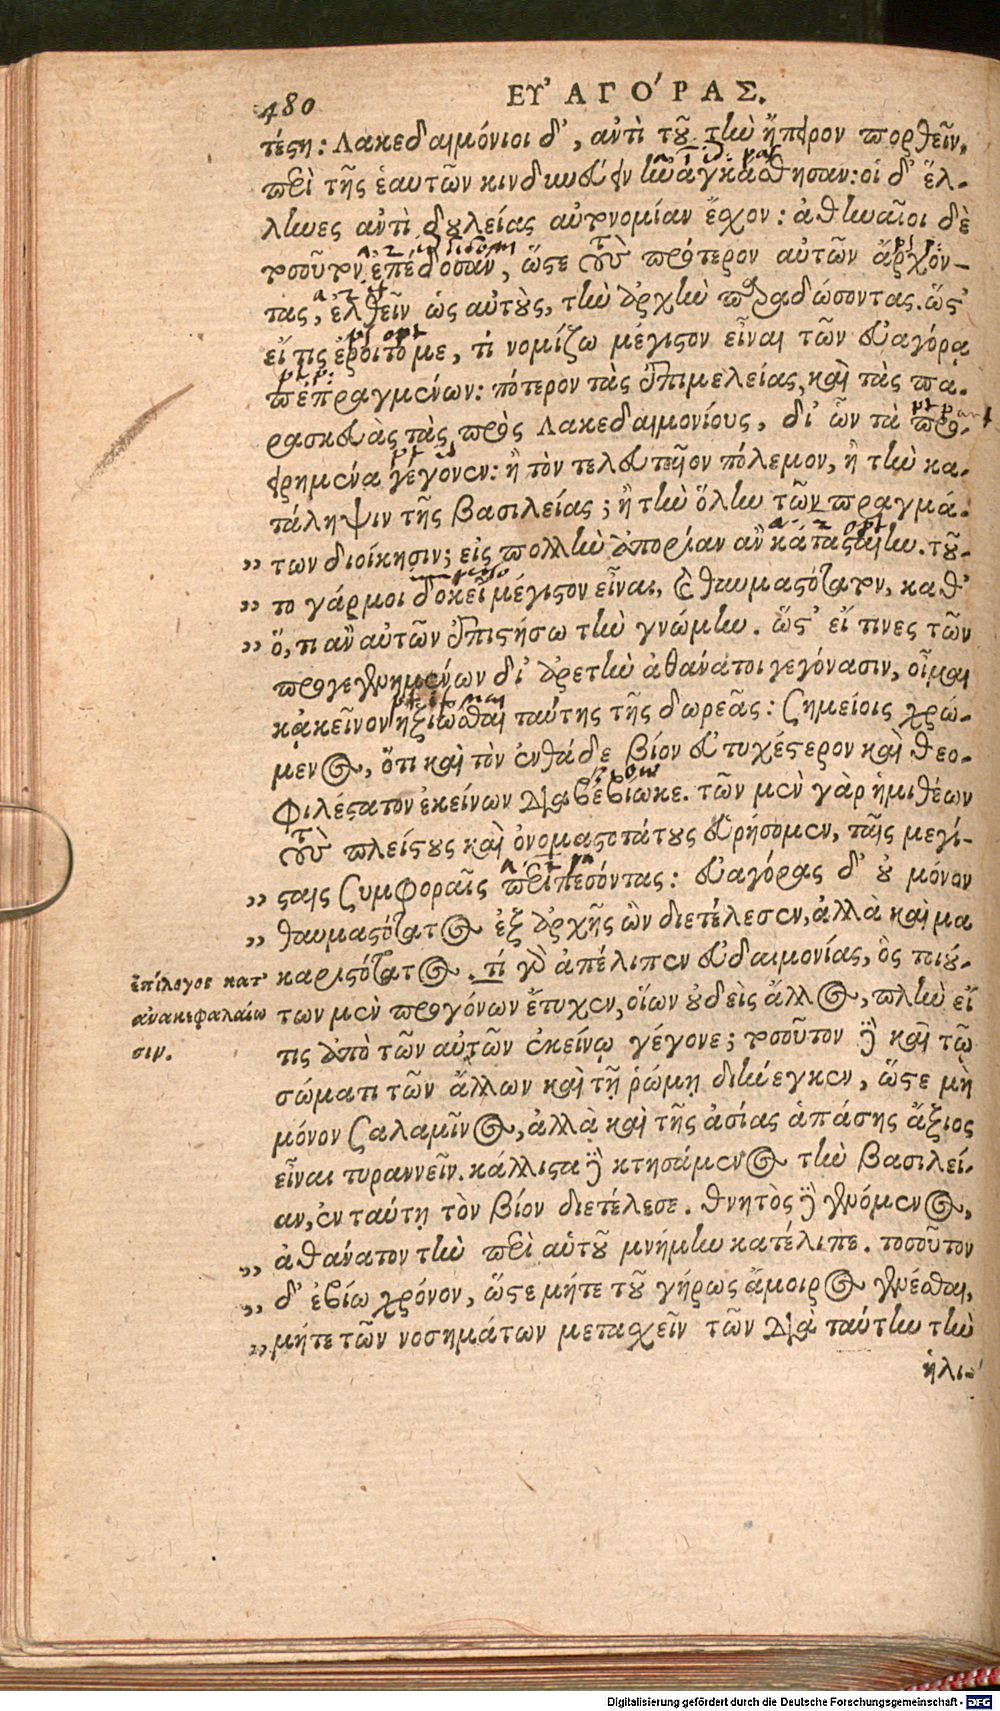 480
ΕΥ̓ΑΓΟ΄ΡΑΣ.
τέστη: Λακεδαιμόνιοι δ', ἀντὶ τοῦ τὴν ἤπειρον πορθεῖν,
περὶ τῆς ἑαυτῶν κινδυνεύειν ἠναγκάσθησαν: οἱ δ' ἕλ-
ληνες ἀντὶ δουλείας αὐτονομίαν ἔχον: ἀθηναῖοι δὲ
τοσοῦτον ἐπέδοσαν, ὥστε τοὺς πρότερον αὐτῶν ἄρχον-
τας, ἐλθεῖν ὡς αὐτοὺς, τὴν ἀρχὴν παραδώσοντας. ὥστ'
εἴ τις ἔροιτο με, τί νομίζω μέγιστον εἶναι τῶν εὐαγόρᾳ
πεπραγμένων: πότερον τὰς ἐπιμελείας, καὶ τὰς πα-
ρασκευὰς τὰς πρὸς Λακεδαιμονίους, δι' ὧν τὰ προ-
ειρημένα γέγονεν: ἢ τὸν τελευταῖον πόλεμον, ἢ τὴν κα-
τάληψιν τῆς βασιλείας; ἢ τὴν ὅλην τῶν πραγμά-
„ των διοίκησιν; εἰς πολλὴν ἀπορίαν ἂν κατασταίην. τοῦ-
„ το γάρ μοι δοκεῖ μέγιστον εἶναι, καὶ θαυμαστότατον, καθ'
„ ὅ, τι ἂν αὐτῶν ἐπιστήσω τὴν γνώμην. ὥστ' εἴ τινες τῶν
προγεγενημένων δι' ἀρετὴν ἀθάνατοι γεγόνασιν, οἶμαι
κἀκεῖνον ἠξιῶσθαι ταύτης τῆς δωρεᾶς: σημείοις χρώ-
μενος, ὅτι καὶ τὸν ἐνθάδε βίον εὐτυχέστερον καὶ θεο-
φιλέστατον ἐκείνων διαβεβίωκε. τῶν μὲν γὰρ ἡμιθέων
τοὺς πλείστους καὶ ὀνομαστοτάτους εὑρήσομεν, ταῖς μεγί-
„ σταις συμφοραῖς περιπεσόντας: εὐαγόρας δ' οὐ μόνον
„ θαυμαστότατος ἐξ ἀρχῆς ὢν διετέλεσεν, ἀλλὰ καὶ μα
καριστότατος. τί γὰρ ἀπέλιπεν εὐδαιμονίας, ὃς τοιού-
των μὲν προγόνων ἔτυχεν, οἵων οὐδεὶς ἄλλος, πλὴν εἴ
τις ἀπὸ τῶν αὐτῶν ἐκείνῳ γέγονε; τοσοῦτον δὲ καὶ τῷ
σώματι τῶν ἄλλων καὶ τῇ ῥώμῃ διήνεγκεν, ὥστε μὴ
μόνον Σαλαμῖνος, ἀλλὰ καὶ τῆς ἀσίας ἁπάσης ἄξιος
εἶναι τυραννεῖν. κάλλιστα δὲ κτησάμενος τὴν βασιλεί-
αν, ἐν ταύτῃ τὸν βίον διετέλεσε. θνητὸς δὲ γενόμενος,
„ ἀθάνατον τὴν περὶ αὑτοῦ μνήμην κατέλιπε. τοσοῦτον
„ δ' ἐβίω χρόνον, ὥστε μήτε τοῦ γήρως ἄμοιρος γενέσθαι,
„ μήτε τῶν νοσημάτων μετασχεῖν τῶν διὰ ταύτην τὴν
ἡλι-
ἐπίλογος κατ'
ἀνακεφαλαίω
σιν.
Digitalisierung gefördert durch die Deutsche Forschungsgemeinschaft - DFG